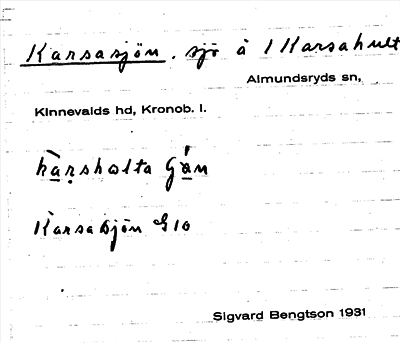 Karsasjön. sjö å 1 Karsahult
Almundsryds sn,
Kinnevalds hd, Kronob. l.
kàrshalta gán
Karsasjön G 10
Sigvard Bengtson 1931